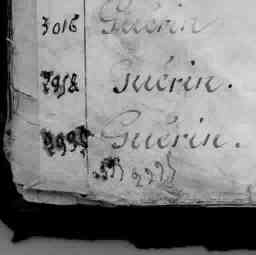 3016 Guérin
2958 Guérin.
2995 Guérin.
2995